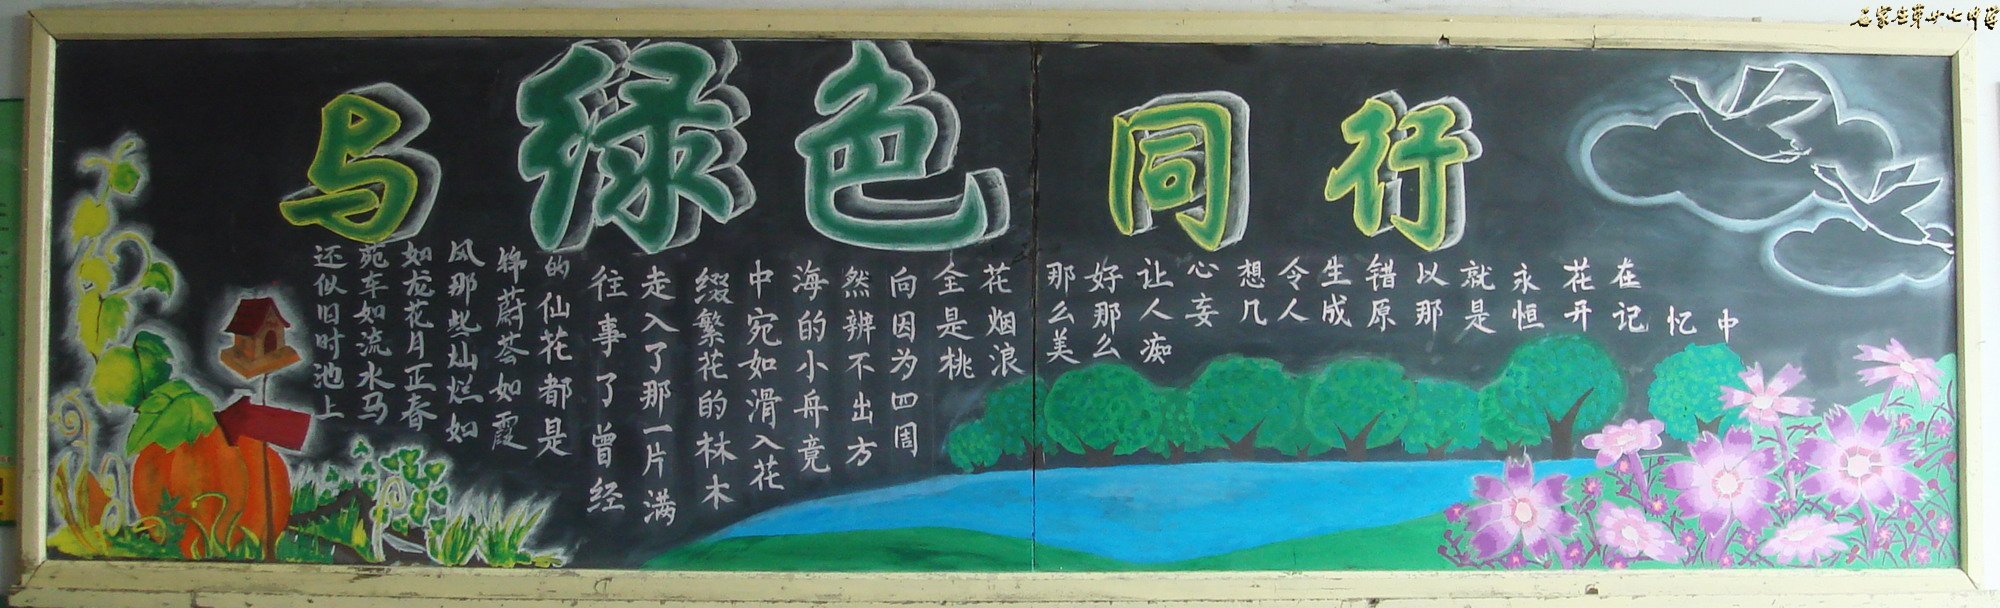 与绿色同行
还似旧时池上
苑车如流水马
如龙花月正春
风那些灿烂如
锦蔚荟如霞
的仙花都是
往事了曾经
走入了那一片满
缀繁花的林木
中宛如滑入花
海的小舟竟
然辨不出方
向因为四周
全是桃
花烟浪
那么美
好那么
让人痴
心妄
想几
令人
生成
错原
以那
就是
永恒
花开
在记
忆
中
石家庄第廿七中学